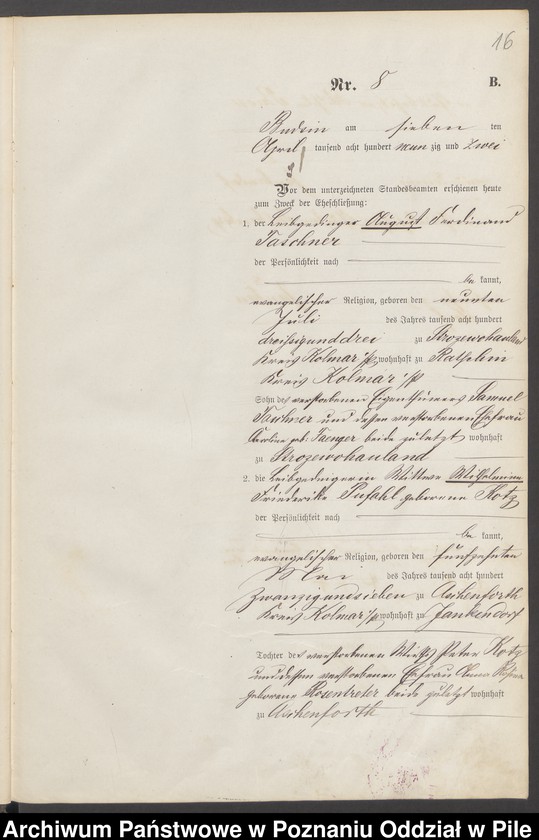 16
Nr. 8 B.
Budsin am sieben ten
April tausend acht hundert neun zig und zwei
Vor dem unterzeichneten Standesbeamten erschienen heute
zum Zweck der Eheschließung:
1. der Leibgedinger August Ferdinand
Taschner
der Persönlichkeit nach
be kannt,
evangelischer Religion, geboren den neunten
Juli des Jahres tausend acht hundert
dreißigunddrei zu Strozewohauland
Kreis Kolmar i/p wohnhaft zu Rathschin
Kreis Kolmar i/p
Sohn des verstorbenen Eigenthümers Samuel
Taschner und dessen verstorbenen Ehefrau
Caroline geb. Faenger beide zuletzt wohnhaft
zu Strozewohauland
2. die Leibgedingerin Wittwe Wilhelmine
Friederike Pufahl geborene Kotz
der Persönlichkeit nach
be kannt,
evangelischer Religion, geboren den fünfzehnten
Mai des Jahres tausend acht hundert
zwanzigundsieben zu Aschenforth
Kreis Kolmar i/p wohnhaft zu Jankendorf
Tochter des verstorbenen Wirths Peter Kotz
und dessen verstorbenen Ehefrau Anna Rosina
geborene Rosentreter beide zuletzt wohnhaft
zu Aschenforth
Archiwum Państwowe w Poznaniu Oddział w Pile